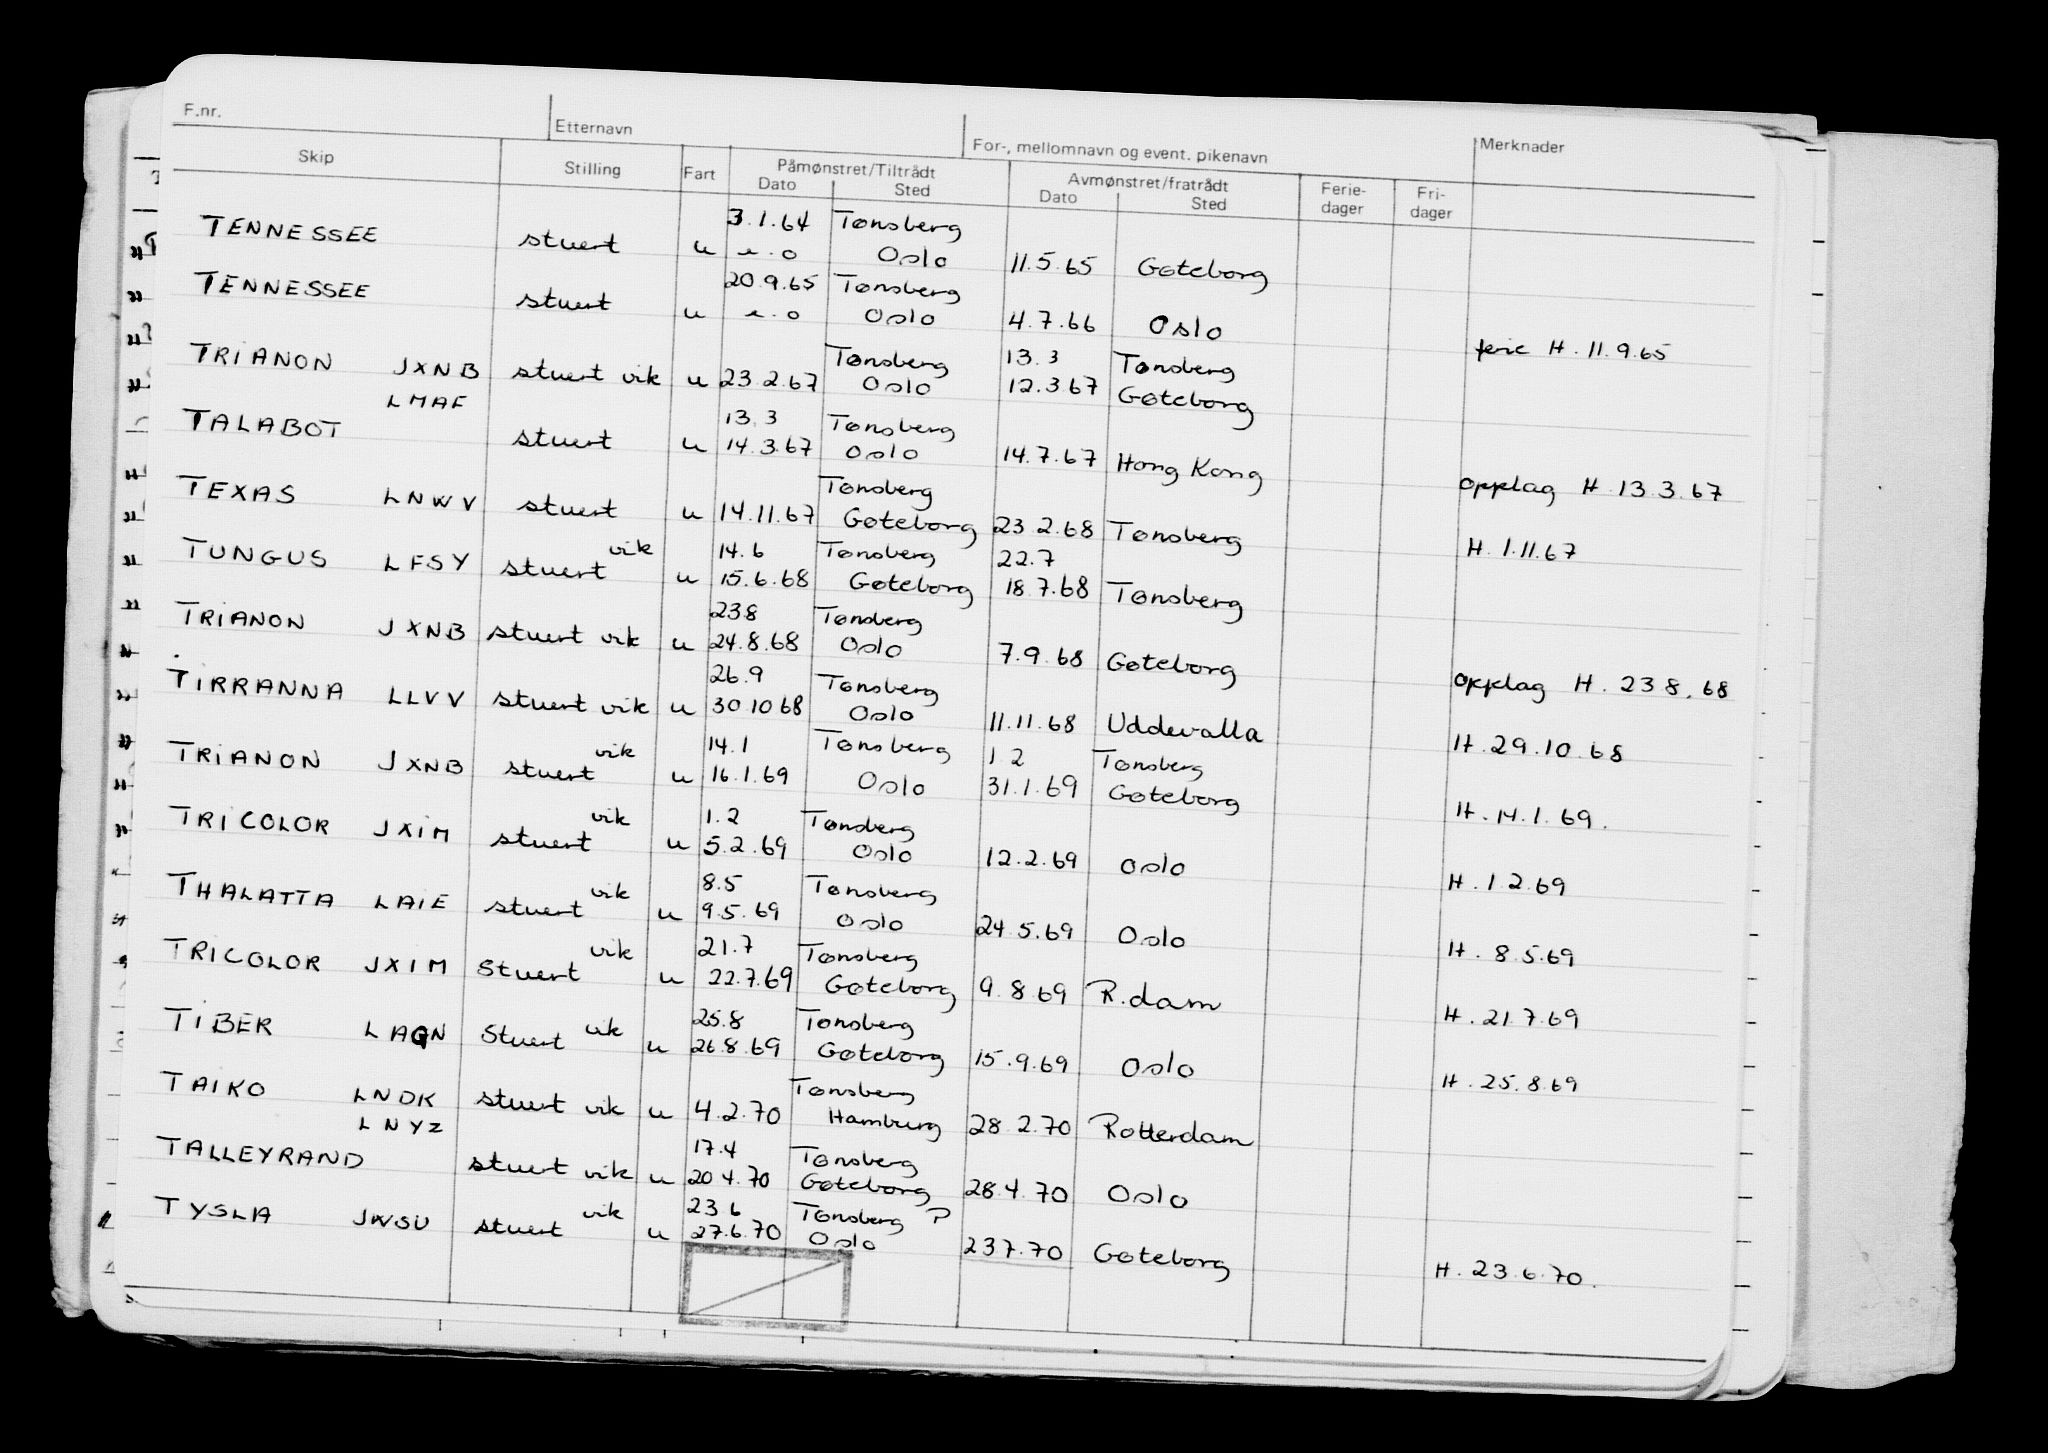 F.nr. Etternavn For-, mellomnavn og event. pikenavn Merknader
Skip Stilling Fart Påmønstret/Tiltrådt Dato Sted Avmønstret/fratrådt Dato Sted Ferie-dager Fri-dager
3.1.64 Tønsberg
TENNESSEE stuert u Oslo 11.5.65 Gøteborg
20.9.65 Tønsberg
TENNESSEE stuert u Oslo 4.7.66 Oslo ferie H. 11.9.65
Tønsberg 13.3 Tønsberg
TRIANON JXNB stuert vik u 23.2.67 Oslo 12.3.67 Gøteborg
LMAF 13.3 Tønsberg
TALABOT stuert u 14.3.67 Oslo 14.7.67 Hong Kong opplag H. 13.3.67
Tønsberg
TEXAS LNWV stuert u 14.11.67 Gøteborg 23.2.68 Tønsberg H. 1.11.67
vik 14.6 Tønsberg 22.7
TUNGUS LFSY stuert u 15.6.68 Gøteborg 18.7.68 Tønsberg
23.8 Tønsberg
TRIANON JXNB stuert vik u 24.8.68 Oslo 7.9.68 Gøteborg opplag H. 23.8.68
26.9 Tønsberg
TIRRANNA LLVV stuert vik u 30.10.68 Oslo 11.11.68 Uddevalla H. 29.10.68
vik 14.1 Tønsberg 1.2 Tønsberg
TRIANON JXNB stuert u 16.1.69 Oslo 31.1.69 Gøteborg H. 14.1.69.
vik 1.2 Tønsberg
TRICOLOR JXIM stuert u 5.2.69 Oslo 12.2.69 Oslo H. 1.2.69
vik 8.5 Tønsberg
THALATTA LAIE stuert u 9.5.69 Oslo 24.5.69 Oslo H. 8.5.69
vik 21.7 Tønsberg
TRICOLOR JXIM Stuert u 22.7.69 Gøteborg 9.8.69 R.dam H. 21.7.69
vik 25.8 Tønsberg
TIBER LAGN Stuert u 26.8.69 Gøteborg 15.9.69 Oslo H. 25.8.69
Tønsberg
TAIKO LNDK stuert vik u 4.2.70 Hamburg 28.2.70 Rotterdam
LNYZ 17.4 Tønsberg
TALLEYRAND stuert vik u 20.4.70 Gøteborg 28.4.70 Oslo
vik 23.6 Tønsberg ?
TYSLA JWSU stuert u 27.6.70 Oslo 23.7.70 Gøteborg H. 23.6.70.